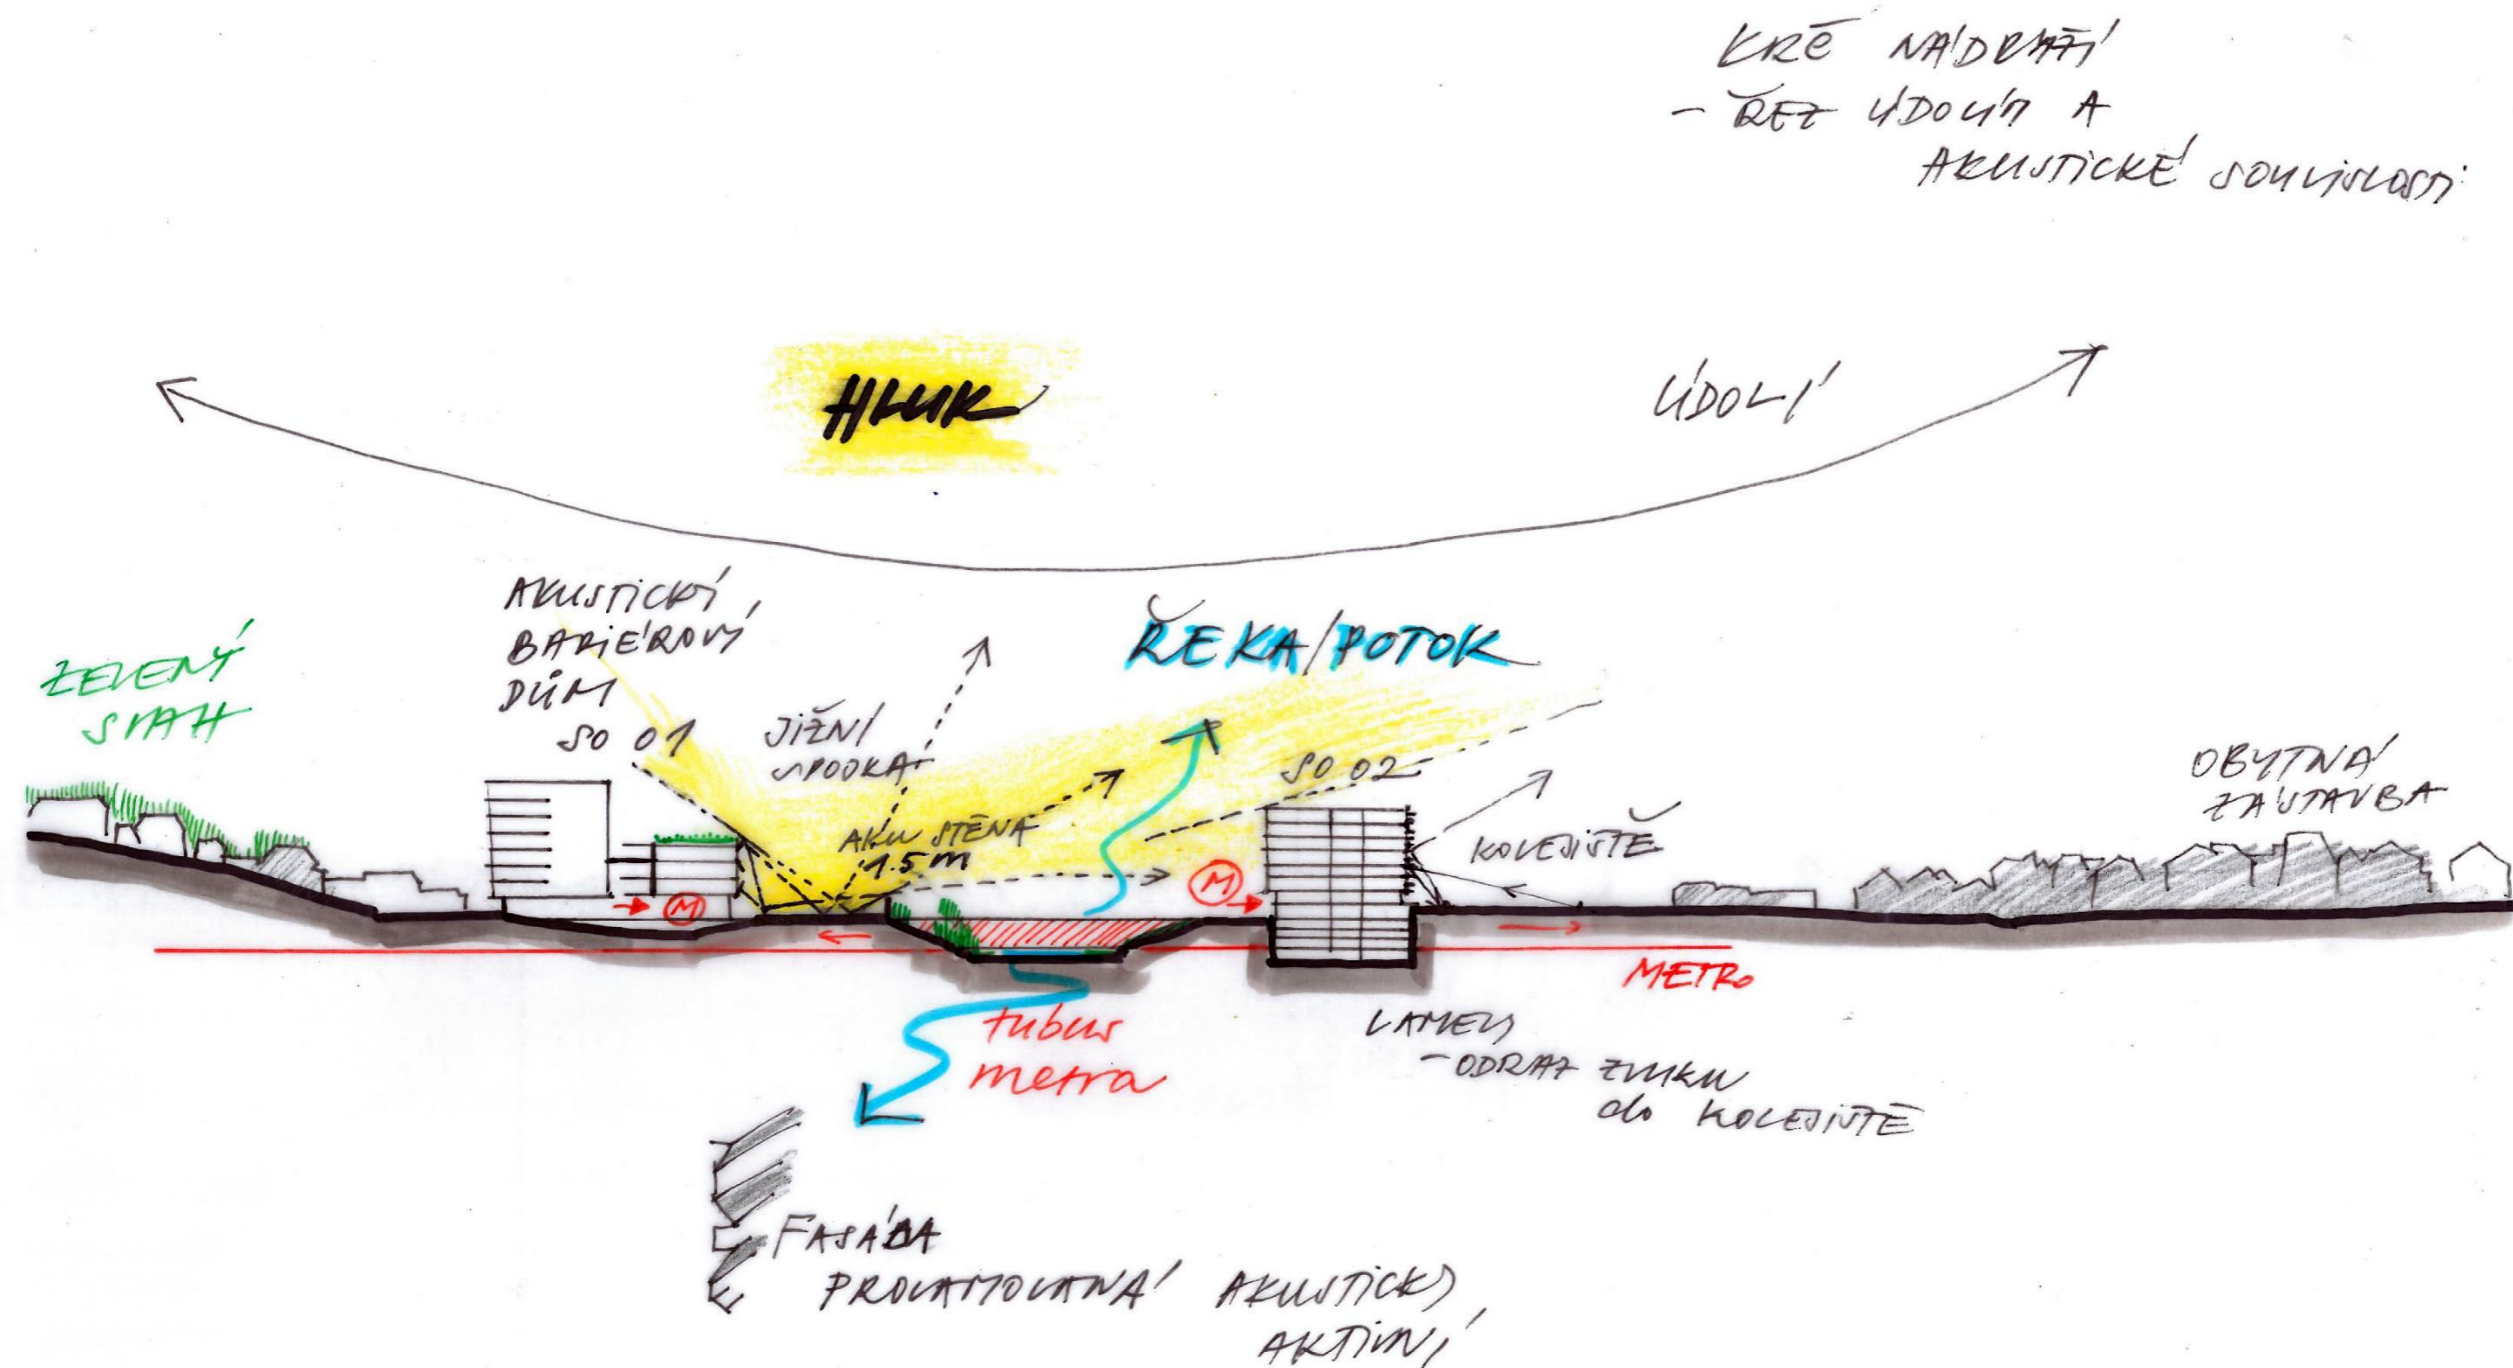 KRČ NÁDRAŽÍ
- ŘEZ ÚDOLÍM A
AKUSTICKÉ SOUVISLOSTI
HLUK
ÚDOLÍ
AKUSTICKÝ
BARIÉROVÝ
DŮM
SO 01
ŘEKA/POTOK
ZELENÝ
SVAH
JIŽNÍ
SPOJKA
SO 02
OBYTNÁ
ZÁSTAVBA
AKU STĚNA
1.5 M
KOLEJIŠTĚ
M
M
METRO
tubus
metra
LAMELY
- ODRAZ ZVUKU
do KOLEJIŠTĚ
FASÁDA
PROLAMOVANÁ AKUSTICKY
AKTIVNÍ